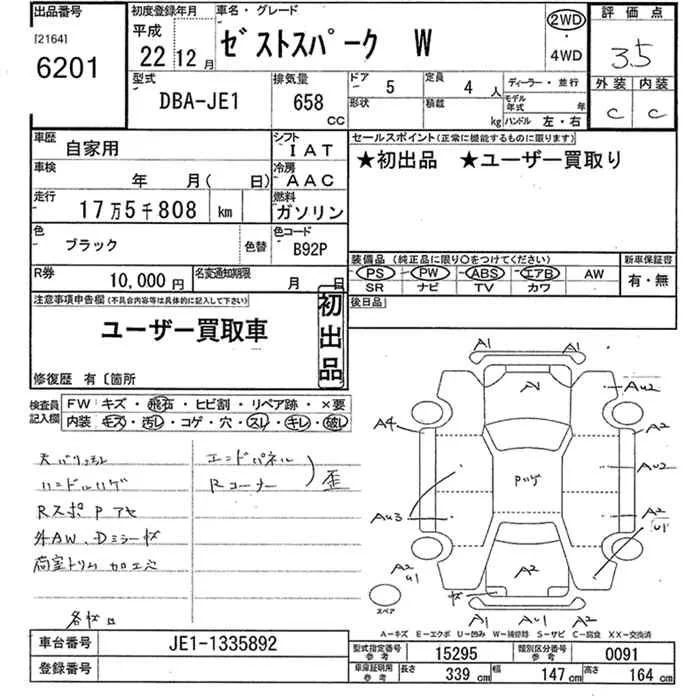 出品番号 初度登録年月 車名・グレード 2WD 評価点
[2164] 平成 ・
6201 22 12月 ゼストスパーク W 4WD 3.5
型式 排気量 ドア 5 定員 4人 ディーラー・並行 外装 内装
DBA-JE1 658 cc 形状 積載 kg モデル年式 年 C C
ハンドル 左・右
車歴 自家用 シフト IAT セールスポイント(正常に機能するものに限ります)
車検 年 月( 日) 冷房 AAC ★初出品 ★ユーザー買取り
走行 17万5千808 km 燃料 ガソリン
色 ブラック 色替 色コード B92P
装備品(純正品に限り○をつけてください) 新車保証書
R券 10,000円 名変通知期限 月 日 PS PW ABS エアB AW 有・無
SR ナビ TV カワ
注意事項申告欄(不具合内容等は具体的に記入して下さい) 初出品 後日品
ユーザー買取車
修復歴 有〔箇所
検査員記入欄 FW キズ・飛石・ヒビ割・リペア跡・×要
内装 キズ・汚レ・コゲ・穴・スレ・キレ・破レ
エンドパネル
ハンドルハゲ Rコーナー 歪
RスポPアセ
外AW、Dミラーキズ
荷室トリム加工穴
各キズ凹
A1 A1
A1 AU2
A4 A2
Pハゲ AU2
AU3 A2
U1
A2
U1 A2
キズ
スペア A1 AU1 A2
A-キズ E-エクボ U-凹み W-補修跡 S-サビ C-腐食 XX-交換済
車台番号 JE1-1335892 型式指定番号 参考 15295 類別区分番号 参考 0091
登録番号 車庫証明用 参考 長さ 339cm 幅 147cm 高さ 164cm